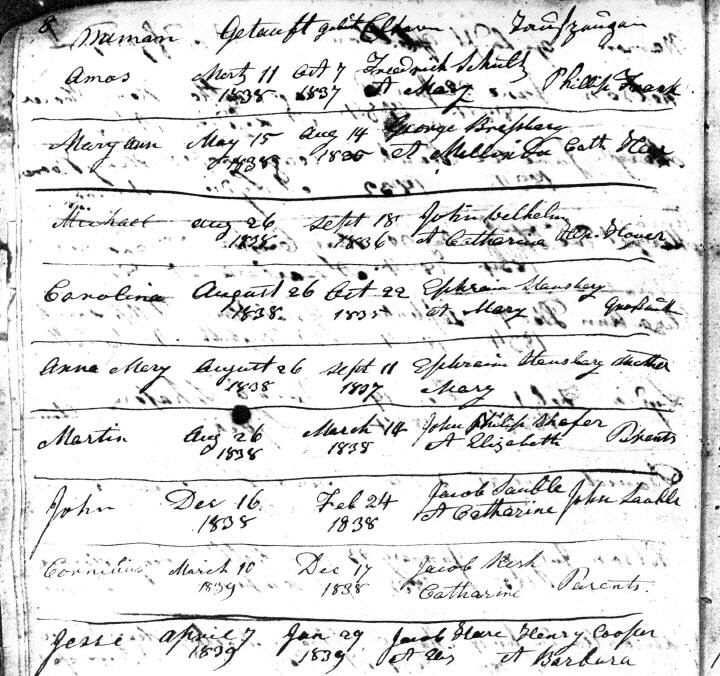 8
Namen Getauft gebst Eltern Taufzeugen
Amos Mertz 11 Oct 7 Friedrich Schultz
1838 1837 & Mary Phillip Frank
Mary Ann May 15 Aug 14 George
1838 & Cath.
Michael Aug 26 Sept 18 John Welhelm
1838 1836 & Catharina
Carolina August 26 Oct 22 Ephraim Stansbery
1838 1835 & Mary
Anna Mary August 26 Sept 11 Ephraim Stansbery Mother
1838 1837 Mary
Martin Aug 26 March 14 John Philip Shafer Parents
1838 1838 & Elizabeth
John Dec 16 Feb 24 Jacob Sauble John Sauble
1838 1838 & Catharine
Cornelius March 10 Dec 17 Jacob
1839 1838 Catharine Parents.
Jesse April 7 Jan 29 Jacob Hare Henry Cooper
1839 1839 & Barbara